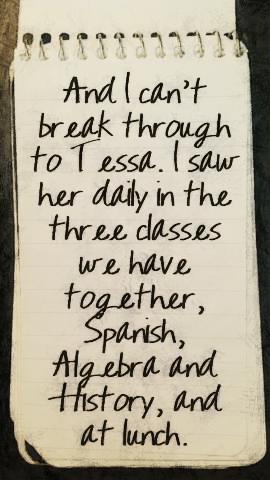 And I can't
break through
to Tessa. I saw
her daily in the
three classes
we have
together,
Spanish,
Algebra and
History, and
at lunch.